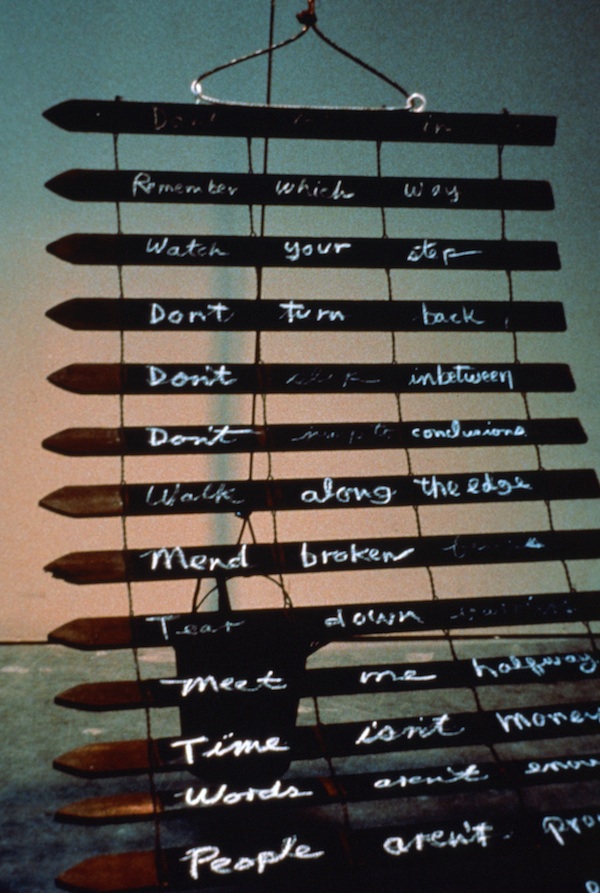 Don't in
Remember which way
Watch your step
Don't turn back
Don't inbetween
Don't conclusions
Walk along the edge
Mend broken
Tear down
Meet me halfway
Time isn't money
Words aren't
People aren't